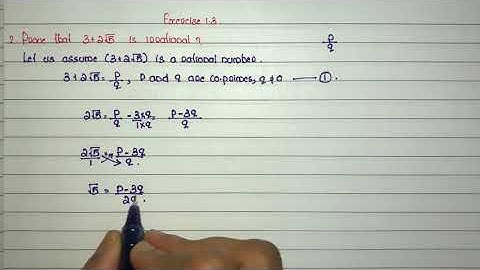 Exercise 1.3
2. Prove that 3+2√5 is irrational?
p/q
Let us assume (3+2√5) is a rational number.
3+2√5 = p/q, p and q are co-primes, q ≠ 0 ——— ①.
2√5 = p/q - 3×q/1×q = p-3q/q
2√5/1 = p-3q/q.
√5 = p-3q/2q.